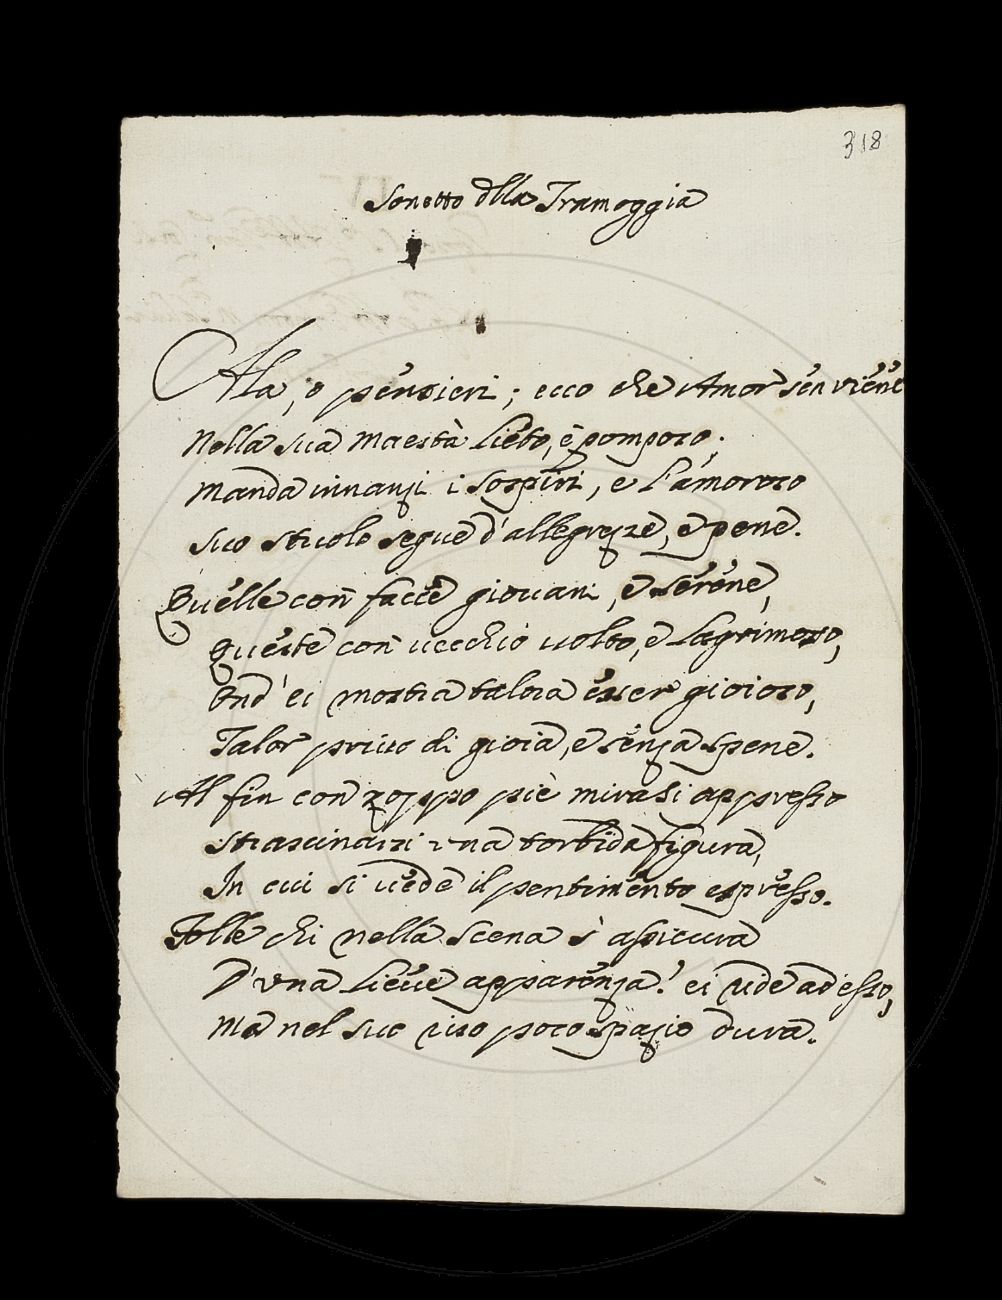 318
Sonetto dlla Tramoggia
Ala, o pensieri; ecco che Amor sen viene
Nella sua maestà lieto, e pomposo.
Manda innanzi i sospiri, e l'amoroso
suo stuolo segue d'allegrezze, e pene.
Quelle con facce giovani, e serene,
Queste con vecchio volto, e lagrimoso,
Ond' ei mostra talora esser gioioso,
Talor privo di gioia, e senza spene.
Al fin con zoppo piè mirasi appresso
strascinarsi una torbida figura,
In cui si vede il pentimento espresso.
Folle chi nella scena s' assicura
D'una lieve apparenza! ei ride adesso,
Ma nel suo riso poco spazio dura.